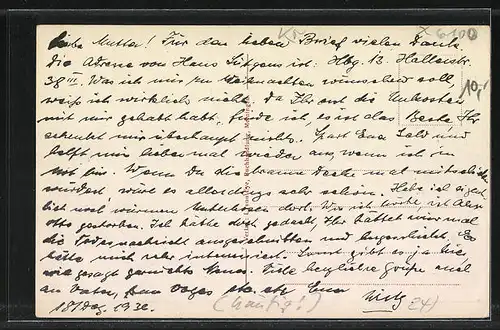 Liebe Mutter! Für den lieben Brief vielen Dank.
die Adresse von Hans ist: Hbg. 13. Hallerstr.
38 III. Was ich mir zu Weihnachten wünschen soll,
weiß ich wirklich nicht. Da Ihr erst die Unkosten
mit mir gehabt habt, finde ich, es ist das Beste, Ihr
schenkt mir überhaupt nichts. Spart Euer Geld und
helft mir lieber mal wieder aus, wenn ich in
Not bin. Wenn Du die braune Decke mal mitschicken
würdest, wäre es allerdings sehr schön. Habe ich eigent-
lich noch Unterhosen dort? ist
Otto gestorben. Ich hätte doch gedacht, Ihr hättet mir mal
die Todesnachricht ausgeschnitten und
hätte mich sehr interessiert. Sonst gibt es ja hier,
wie gesagt, garnichts Neues. Viele herzliche Grüße auch
an Vater, Frau etc. etc. Euer
18/Dez. 1932.
X 6100
10,-